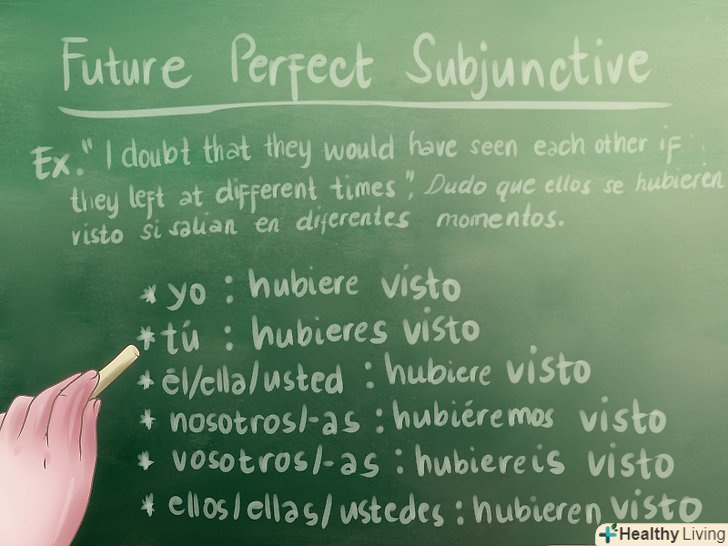 Future Perfect Subjunctive
Ex. "I doubt that they would have seen each other if
they left at different times", Dudo que ellos se hubieren
visto si salian en diferentes momentos.
* yo : hubiere visto
* tú : hubieres visto
* él/ella/usted : hubiere visto
* nosotros/-as : hubiéremos visto
* vosotros/-as : hubiereis visto
* ellos/ellas/ustedes : hubieren visto
Healthy Living